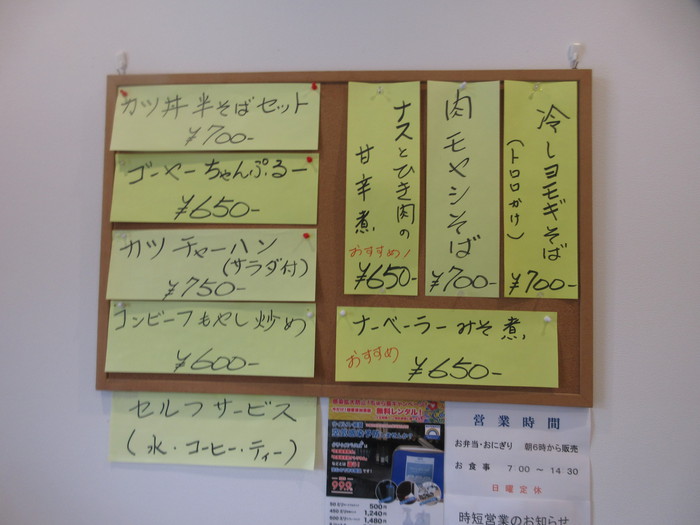 カツ丼半そばセット
¥700-
ゴーヤーちゃんぷるー
¥650-
カツチャーハン
(サラダ付)
¥750-
コンビーフもやし炒め
¥600-
セルフサービス
(水・コーヒー・ティー)
冷しヨモギそば
(トロロかけ)
¥700-
肉モヤシそば
¥700-
ナスとひき肉の
甘辛煮
おすすめ!
¥650-
ナーベーラーみそ煮
おすすめ
¥650-
無料レンタル!
999
500円
1,240円
1,480円
営業時間
お弁当・おにぎり 朝6時から販売
お食事 7:00〜14:30
日曜定休
時短営業のお知らせ